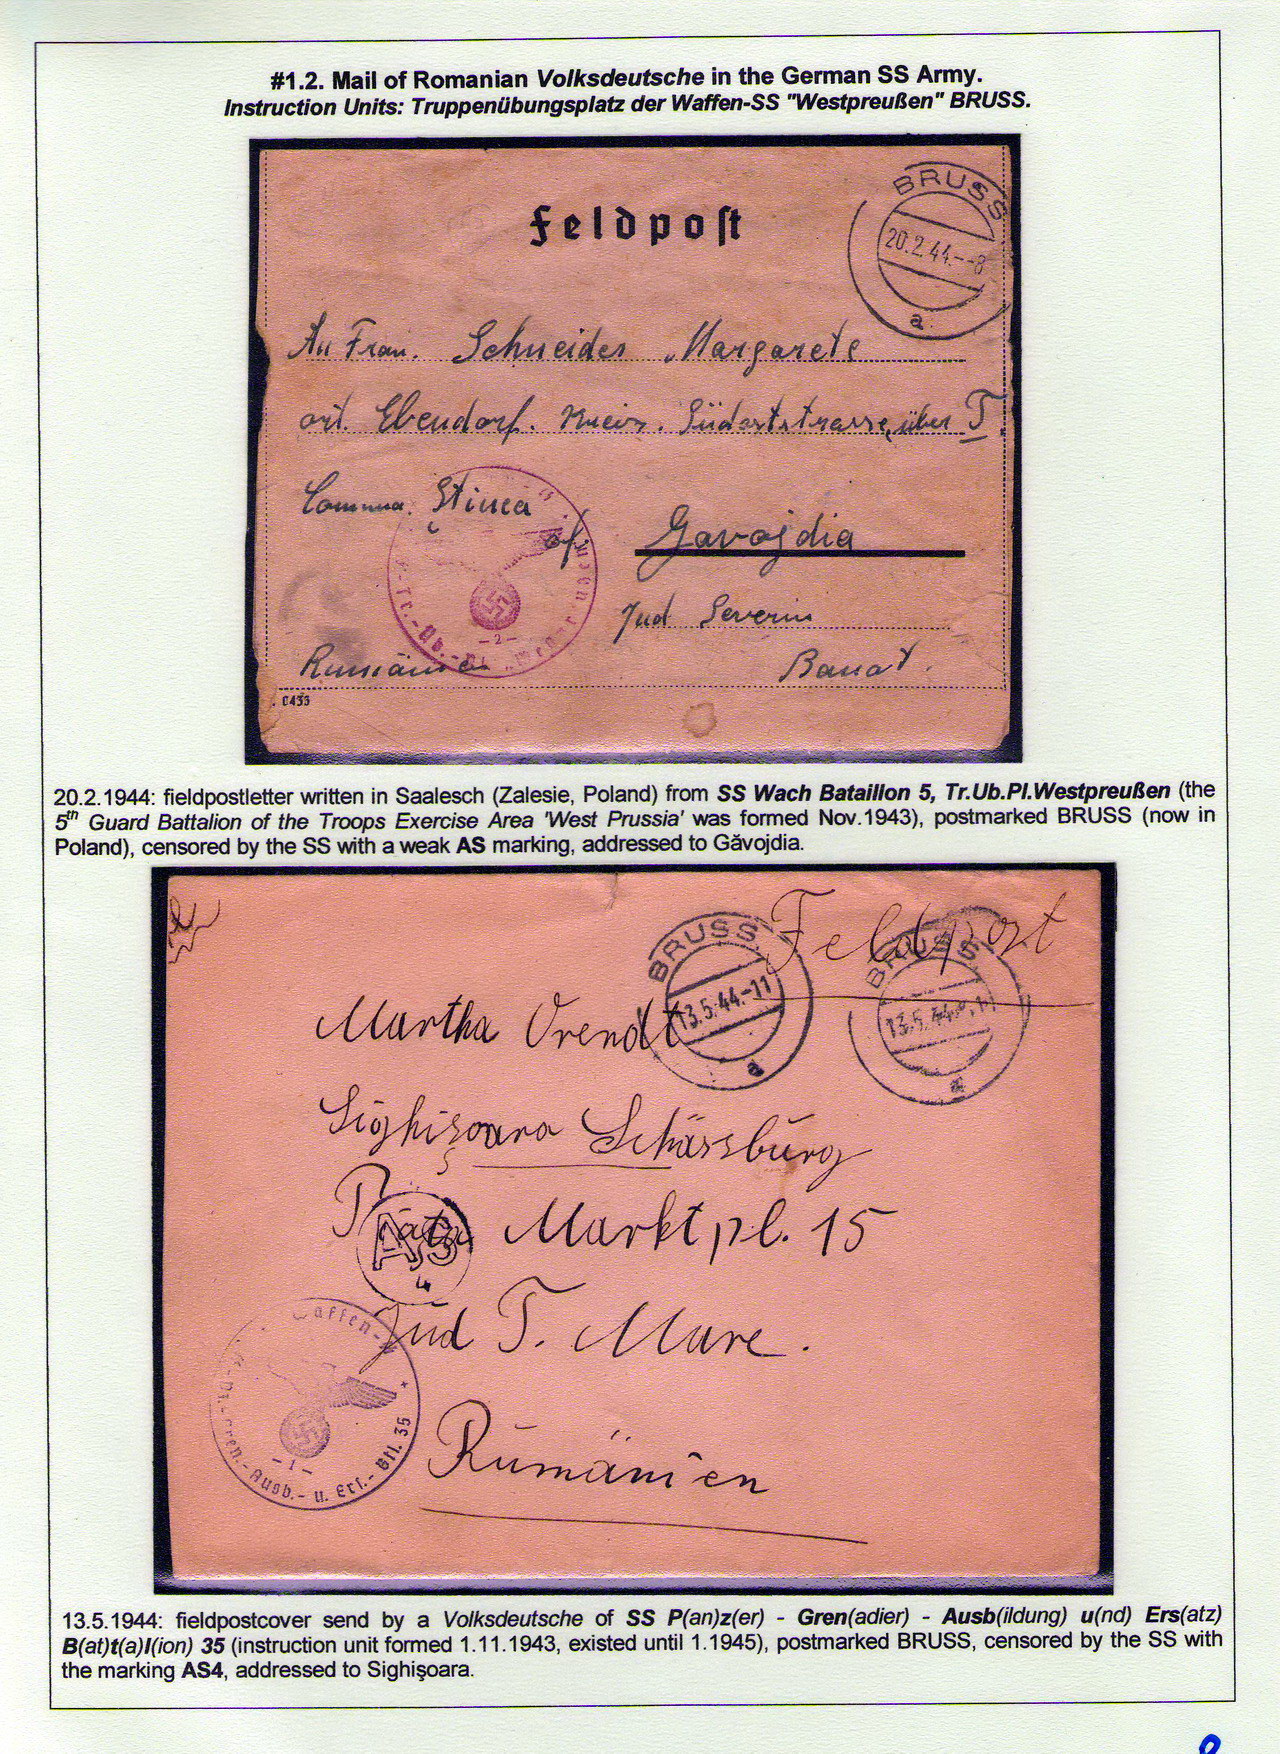 #1.2. Mail of Romanian Volksdeutsche in the German SS Army.
Instruction Units: Truppenübungsplatz der Waffen-SS "Westpreußen" BRUSS.
Feldpost
BRUSS
20.2.44.--8
a
An Frau. Schneider Margarete
ort. Ebendorf. Südoststrasse, über T.
Comuna. Știuca
Gavojdia
Jud Severin
-2-
Rumänien Banat.
0433
20.2.1944: fieldpostletter written in Saalesch (Zalesie, Poland) from SS Wach Bataillon 5, Tr.Ub.Pl.Westpreußen (the
5th Guard Battalion of the Troops Exercise Area 'West Prussia' was formed Nov.1943), postmarked BRUSS (now in
Poland), censored by the SS with a weak AS marking, addressed to Găvojdia.
Feldpost
BRUSS
13.5.44.-11
a
BRUSS
13.5.44
a
Martha Orendt
Sighişoara Schässburg
Marktpl. 15
AS
Jud T. Mare.
Waffen-
Gren.-Ausb.- u. Ers.- Btl. 35
-1-
Rumänien
13.5.1944: fieldpostcover send by a Volksdeutsche of SS P(an)z(er) - Gren(adier) - Ausb(ildung) u(nd) Ers(atz)
B(at)t(a)l(ion) 35 (instruction unit formed 1.11.1943, existed until 1.1945), postmarked BRUSS, censored by the SS with
the marking AS4, addressed to Sighişoara.